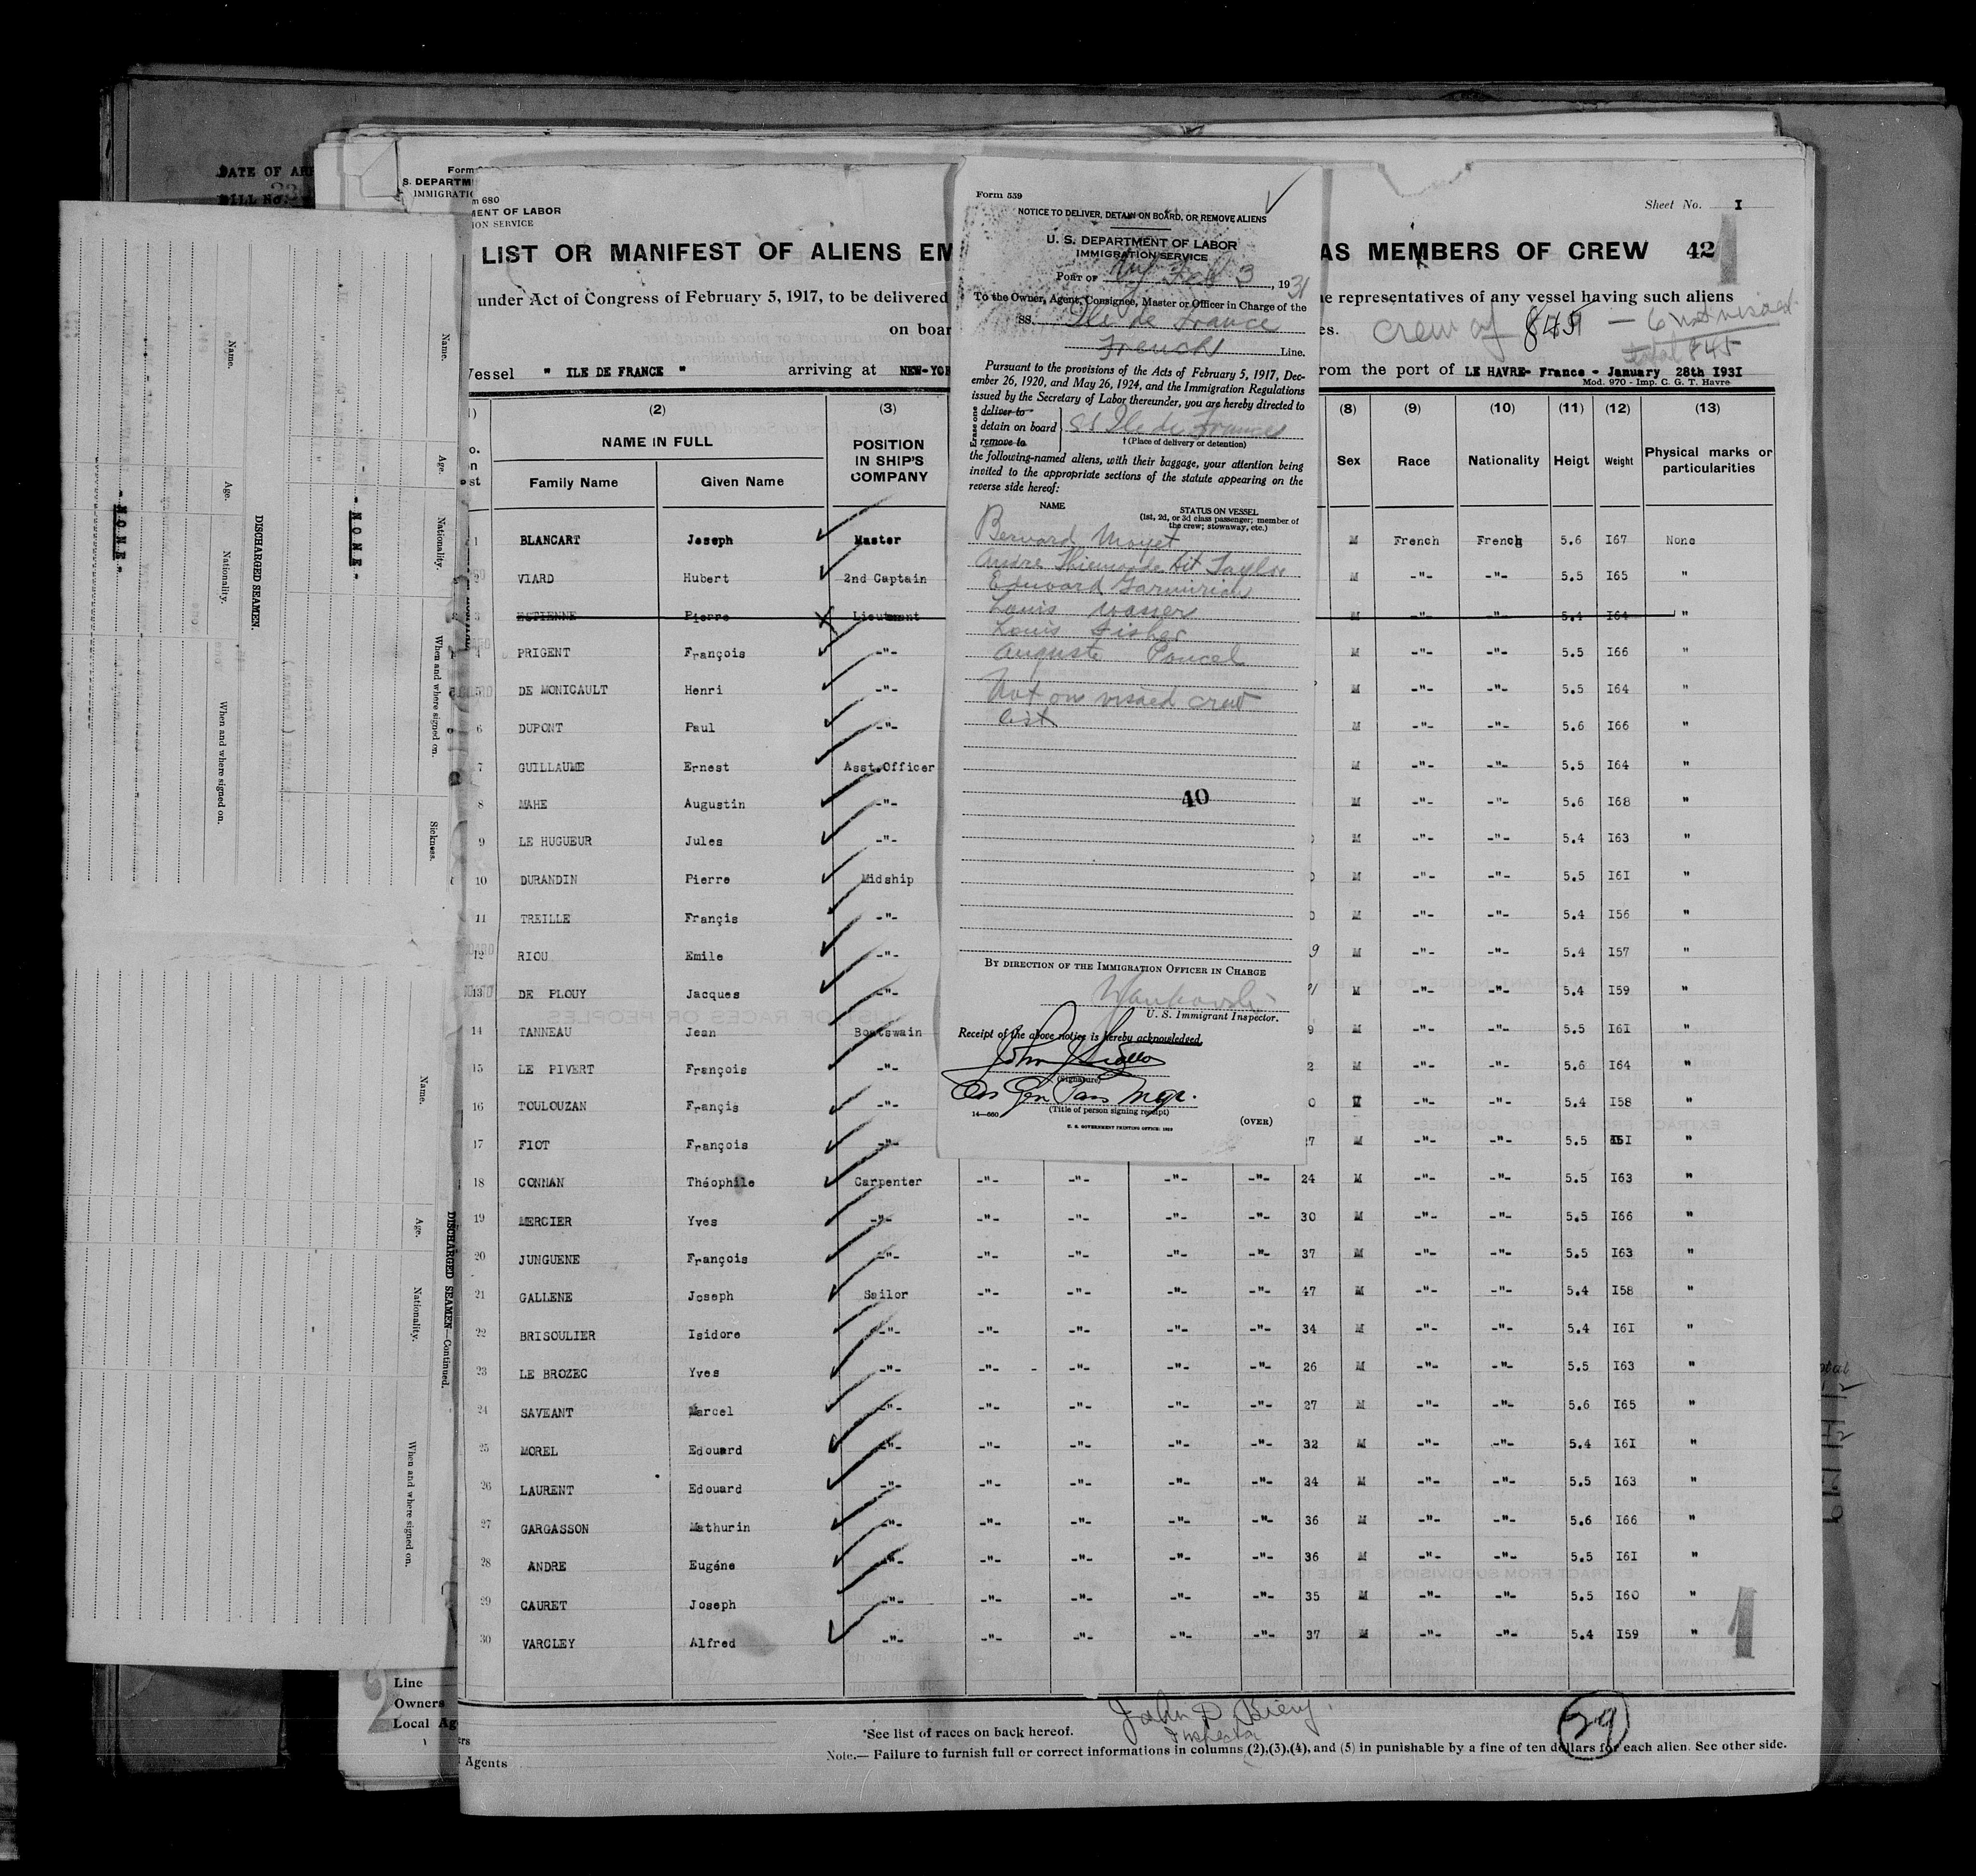 DATE OF
BILL No.
Form
S. DEPARTM
IMMIGRATIO
m 680
MENT OF LABOR
ION SERVICE
Sheet No. I
LIST OR MANIFEST OF ALIENS EM
AS MEMBERS OF CREW 42
under Act of Congress of February 5, 1917, to be delivered
e representatives of any vessel having such aliens
on boar
es.
crew of
total 845
Vessel " ILE DE FRANCE " arriving at NEW-YOR
rom the port of LE HAVRE- France - January 28th I93I
Mod. 970 - Imp. C. G. T. Havre
(2) (3) (8) (9) (10) (11) (12) (13)
NAME IN FULL
Family Name Given Name
POSITION
IN SHIP'S
COMPANY
Sex Race Nationality Heigt Weight Physical marks or
particularities
1 BLANCART Joseph Master M French French 5.6 I67 None
2 VIARD Hubert 2nd Captain M -"- -"- 5.5 I65 "
3 ESTIENNE Pierre Lieutenant M -"- -"- 5.4 I64 "
4 PRIGENT François -"- M -"- -"- 5.5 I66 "
5 DE MONICAULT Henri -"- M -"- -"- 5.5 I64 "
6 DUPONT Paul -"- M -"- -"- 5.6 I66 "
7 GUILLAUME Ernest Asst.Officer M -"- -"- 5.5 I64 "
8 MAHE Augustin -"- M -"- -"- 5.6 I68 "
9 LE HUGUEUR Jules -"- M -"- -"- 5.4 I63 "
10 DURANDIN Pierre Midship M -"- -"- 5.5 I6I "
11 TREILLE Françis -"- M -"- -"- 5.4 I56 "
12 RIOU Emile -"- 9 M -"- -"- 5.4 I57 "
13 DE PLOUY Jacques -"- M -"- -"- 5.4 I59 "
14 TANNEAU Jean Boatswain 9 M -"- -"- 5.5 I6I "
15 LE PIVERT François -"- 2 M -"- -"- 5.6 I64 "
16 TOULOUZAN Françis -"- 0 M -"- -"- 5.4 I58 "
17 FIOT François -"- 7 M -"- -"- 5.5 I5I "
18 CONNAN Théophile Carpenter -"- -"- -"- -"- 24 M -"- -"- 5.5 I63 "
19 MERCIER Yves -"- -"- -"- -"- -"- 30 M -"- -"- 5.5 I66 "
20 JUNGUENE François -"- -"- -"- -"- -"- 37 M -"- -"- 5.5 I63 "
21 GALLENE Joseph Sailor -"- -"- -"- -"- 47 M -"- -"- 5.4 I58 "
22 BRISOULIER Isidore -"- -"- -"- -"- -"- 34 M -"- -"- 5.4 I6I "
23 LE BROZEC Yves -"- -"- -"- -"- -"- 26 M -"- -"- 5.5 I63 "
24 SAVEANT Marcel -"- -"- -"- -"- -"- 27 M -"- -"- 5.6 I65 "
25 MOREL Edouard -"- -"- -"- -"- -"- 32 M -"- -"- 5.4 I6I "
26 LAURENT Edouard -"- -"- -"- -"- -"- 24 M -"- -"- 5.5 I63 "
27 GARGASSON Mathurin -"- -"- -"- -"- -"- 36 M -"- -"- 5.6 I66 "
28 ANDRE Eugéne -"- -"- -"- -"- -"- 36 M -"- -"- 5.5 I6I "
29 CAURET Joseph -"- -"- -"- -"- -"- 35 M -"- -"- 5.5 I60 "
30 VARCLEY Alfred -"- -"- -"- -"- -"- 37 M -"- -"- 5.4 I59 "
Form 559
NOTICE TO DELIVER, DETAIN ON BOARD, OR REMOVE ALIENS
U. S. DEPARTMENT OF LABOR
IMMIGRATION SERVICE
PORT OF NY Feb 3, 1931
To the Owner, Agent, Consignee, Master or Officer in Charge of the
SS. Ile de France
French Line.
Pursuant to the provisions of the Acts of February 5, 1917, Dec-
ember 26, 1920, and May 26, 1924, and the Immigration Regulations
issued by the Secretary of Labor thereunder, you are hereby directed to
Erase one
deliver to
detain on board SS Ile de France
remove to
† (Place of delivery or detention)
the following-named aliens, with their baggage, your attention being
invited to the appropriate sections of the statute appearing on the
reverse side hereof:
NAME
STATUS ON VESSEL
(1st, 2d, or 3d class passenger; member of
the crew; stowaway, etc.)
Bernard Moyet
Andre
Louis Wasser
Louis Fisher
Auguste Poncel
Not on visaed crew
list
40
BY DIRECTION OF THE IMMIGRATION OFFICER IN CHARGE
U. S. Immigrant Inspector.
Receipt of the above notice is hereby acknowledged.
John
(Signature)
Gen Pass Mgr.
(Title of person signing receipt)
14—660
(OVER)
U. S. GOVERNMENT PRINTING OFFICE: 1929
Name. Age. Nationality. When and where signed on. Sickness.
"NONE"
DISCHARGED SEAMEN.
Name. Age. Nationality. When and where signed on.
"NONE"
DISCHARGED SEAMEN—Continued.
Name. Age. Nationality. When and where signed on.
Line
Owners
Local Ag
Agents
John D.
Inspector
29
*See list of races on back hereof.
Note.— Failure to furnish full or correct informations in columns (2),(3),(4), and (5) in punishable by a fine of ten dollars for each alien. See other side.